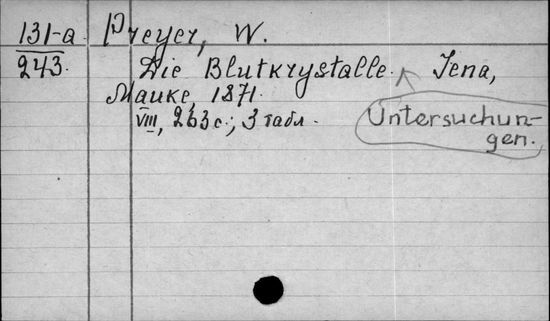 131-a Preyer, W.
243. Die Blutkrystalle. Jena,
Mauke, 1871.
VIII, 263 с.; 3 табл.
Untersuchun-
gen.